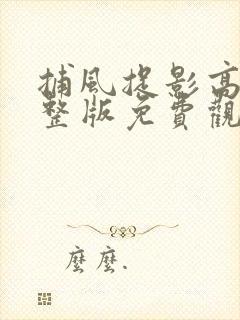 捕風捉影高
整版免費觀
麼麼.